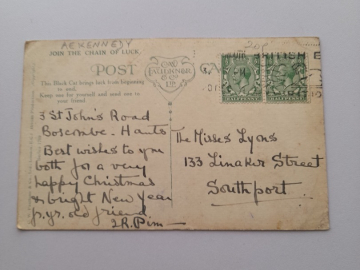 AEKENNEDY
JOIN THE CHAIN OF LUCK.
This Black Cat brings luck from beginning
to end,
Keep one for yourself and send one to
your friend.
POST
CARD
BRITISH E
HALFPENNY
HALFPENNY
3 St Johns Road
Boscombe. Hants
Best wishes to you
both for a very
happy Christmas
& bright New Year
from yr. old friend.
J.R. Pim
The Misses Lyons
133 Linaker Street
Southport